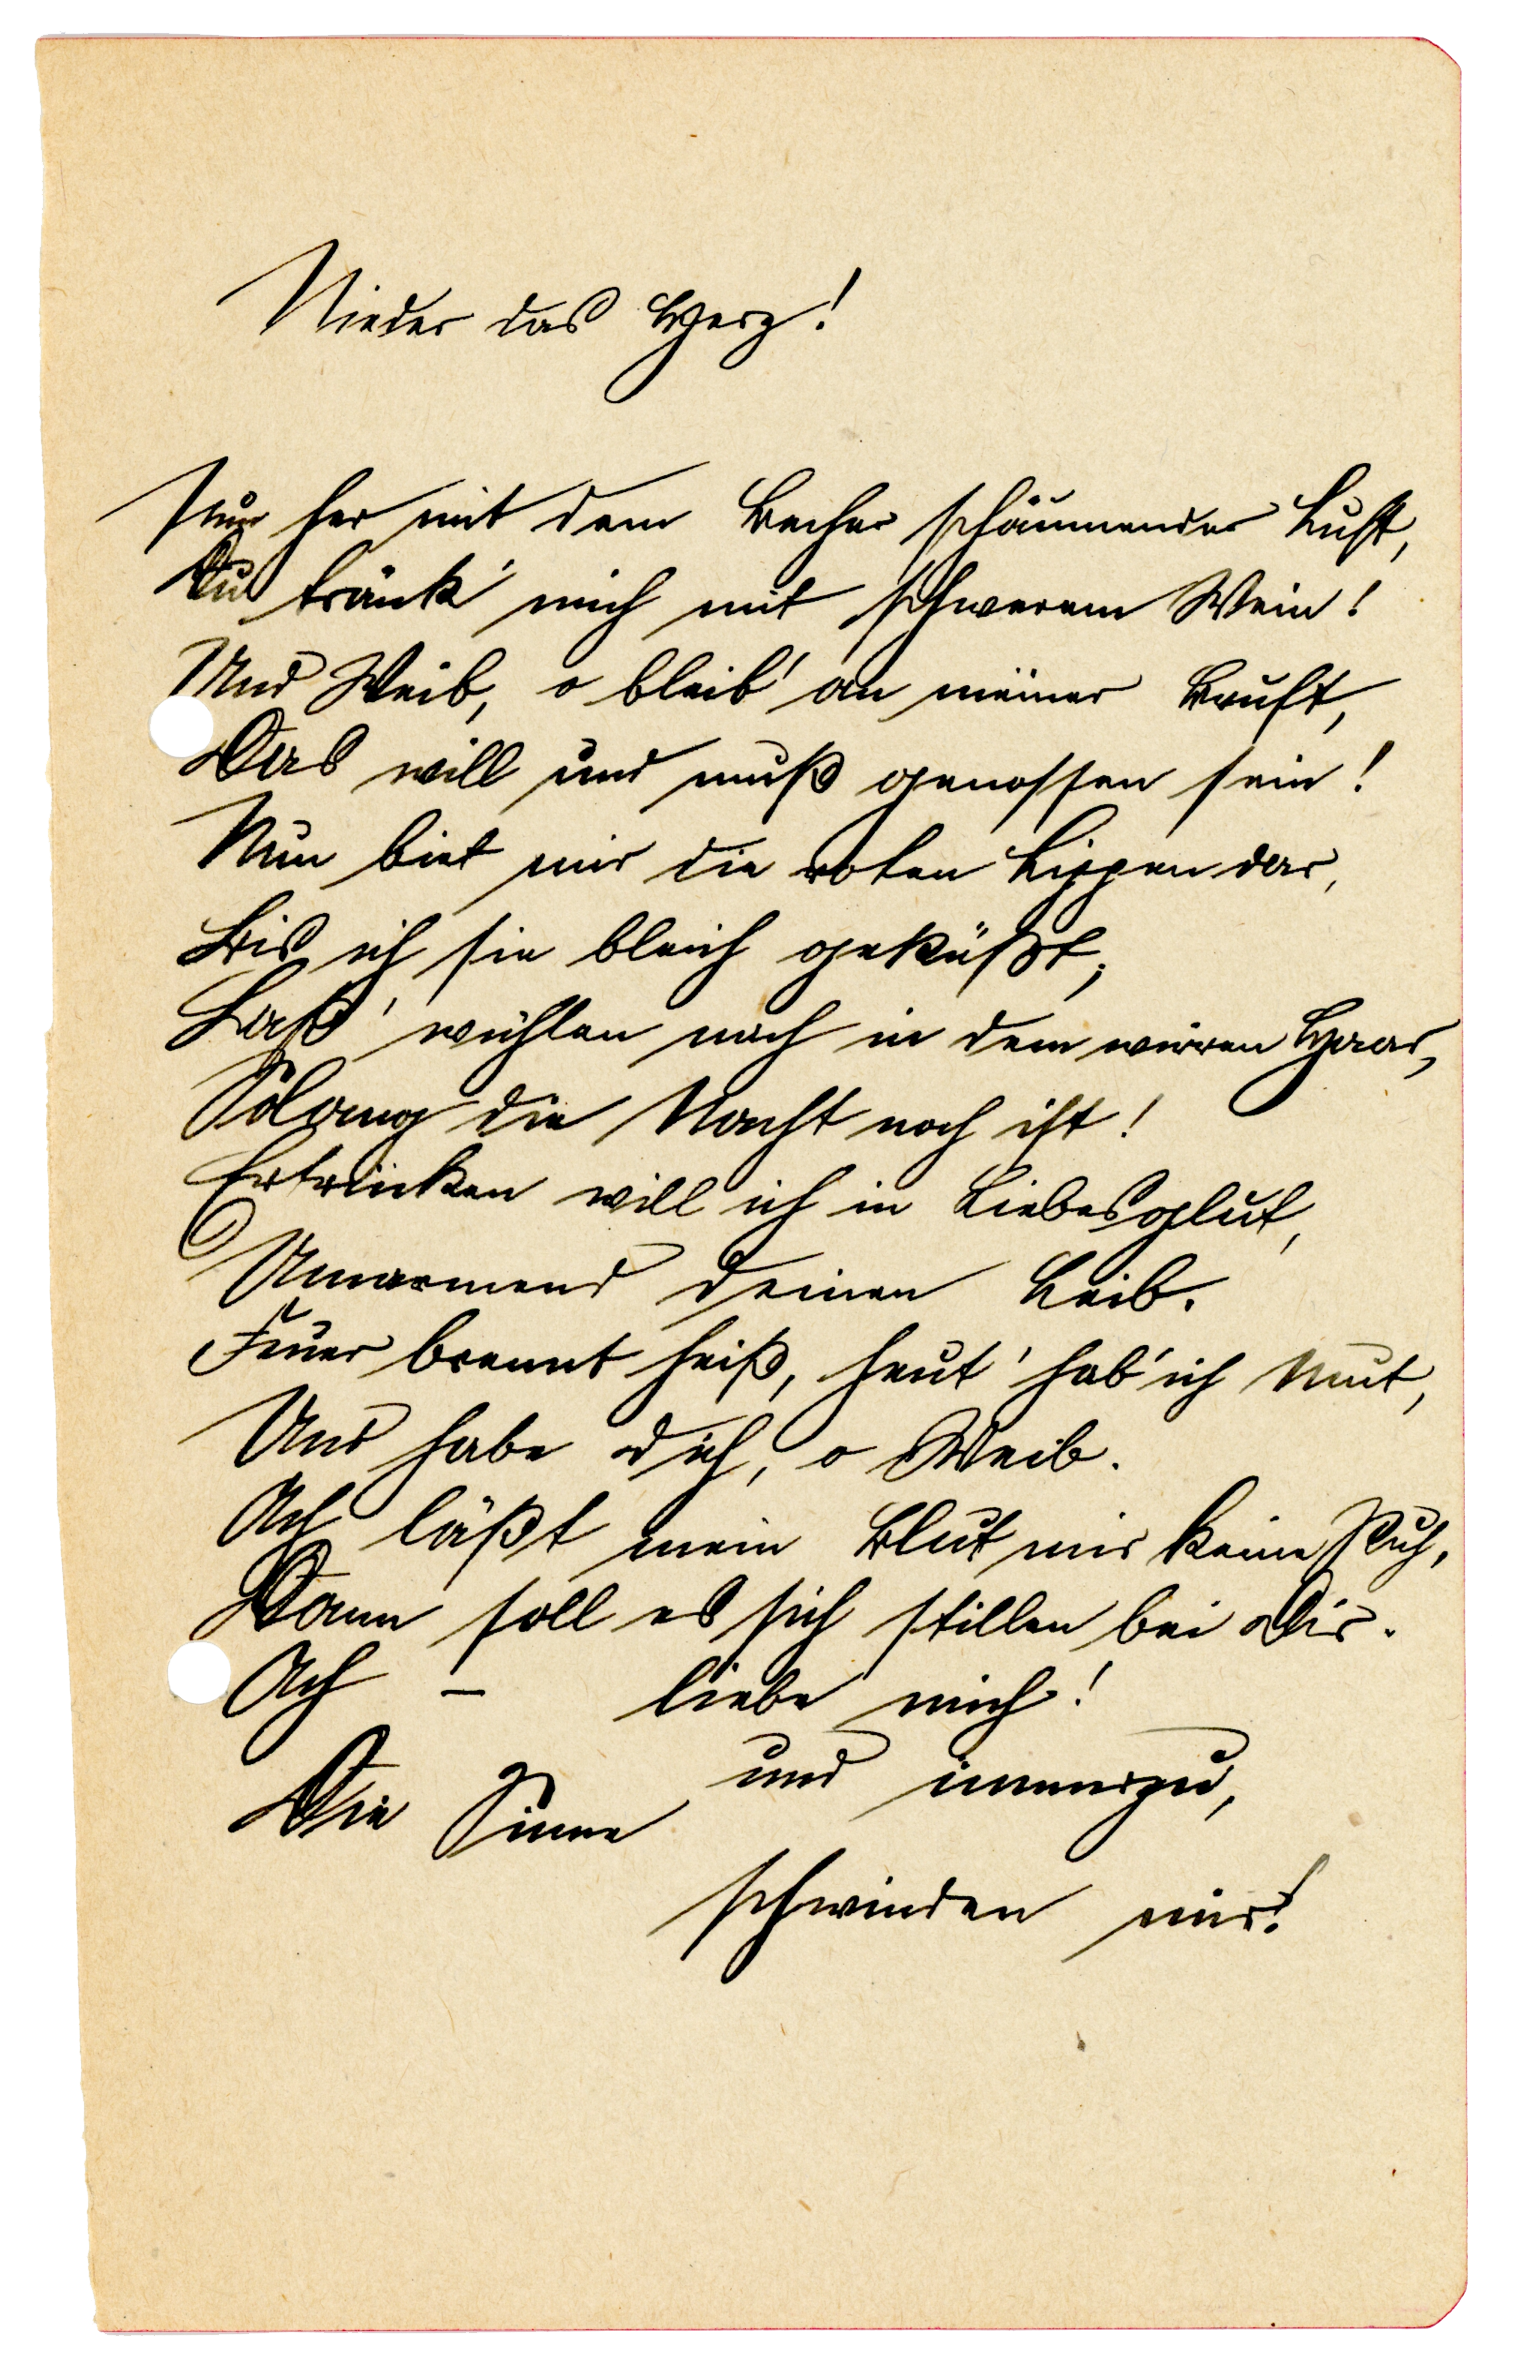 Nieder das Herz!
Nur her mit dem Becher schäumender Lust,
Du tränk' mich mit schwerem Wein!
Und Weib, o bleib' an meiner Brust,
Das will und muß genossen sein!
Nun biet mir die roten Lippen dar,
Bis ich sie bleich geküßt;
Laß' wühlen mich in dem wirren Haar,
Solang die Nacht noch ist!
Ertrinken will ich in Liebesglut,
Umarmend deinen Leib.
Feuer brennt heiß, heut' hab' ich Mut,
Und habe dich, o Weib.
Ach läßt mein Blut mir keine Ruh,
Dann soll es sich stillen bei Dir.
Ach – liebe mich!
und immerzu,
Die Sinne
schwinden mir!